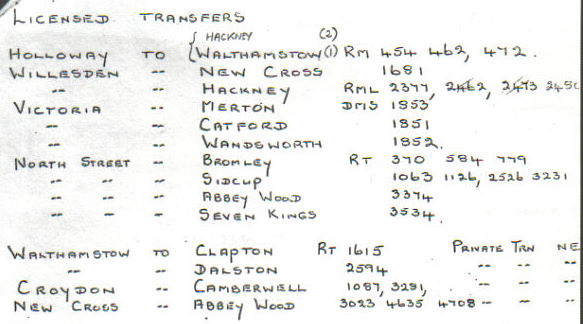 LICENSED TRANSFERS
{ HACKNEY (2)
HOLLOWAY TO { WALTHAMSTOW (1) RM 454 462, 472.
WILLESDEN -- NEW CROSS 1681
-- -- HACKNEY RML 2377, 2462, 2473 245
VICTORIA -- MERTON DMS 1853
-- -- CATFORD 1851
-- -- WANDSWORTH 1852.
NORTH STREET -- BROMLEY RT 370 584 779
-- -- -- SIDCUP 1063 1126, 2526 3231
-- -- -- ABBEY WOOD 3374
-- -- -- SEVEN KINGS 3534.
WALTHAMSTOW TO CLAPTON RT 1615 PRIVATE TRN NE
-- -- DALSTON 2594 -- -- --
CROYDON -- CAMBERWELL 1087, 3281, -- -- --
NEW CROSS -- ABBEY WOOD 3023 4635 4708 -- -- --